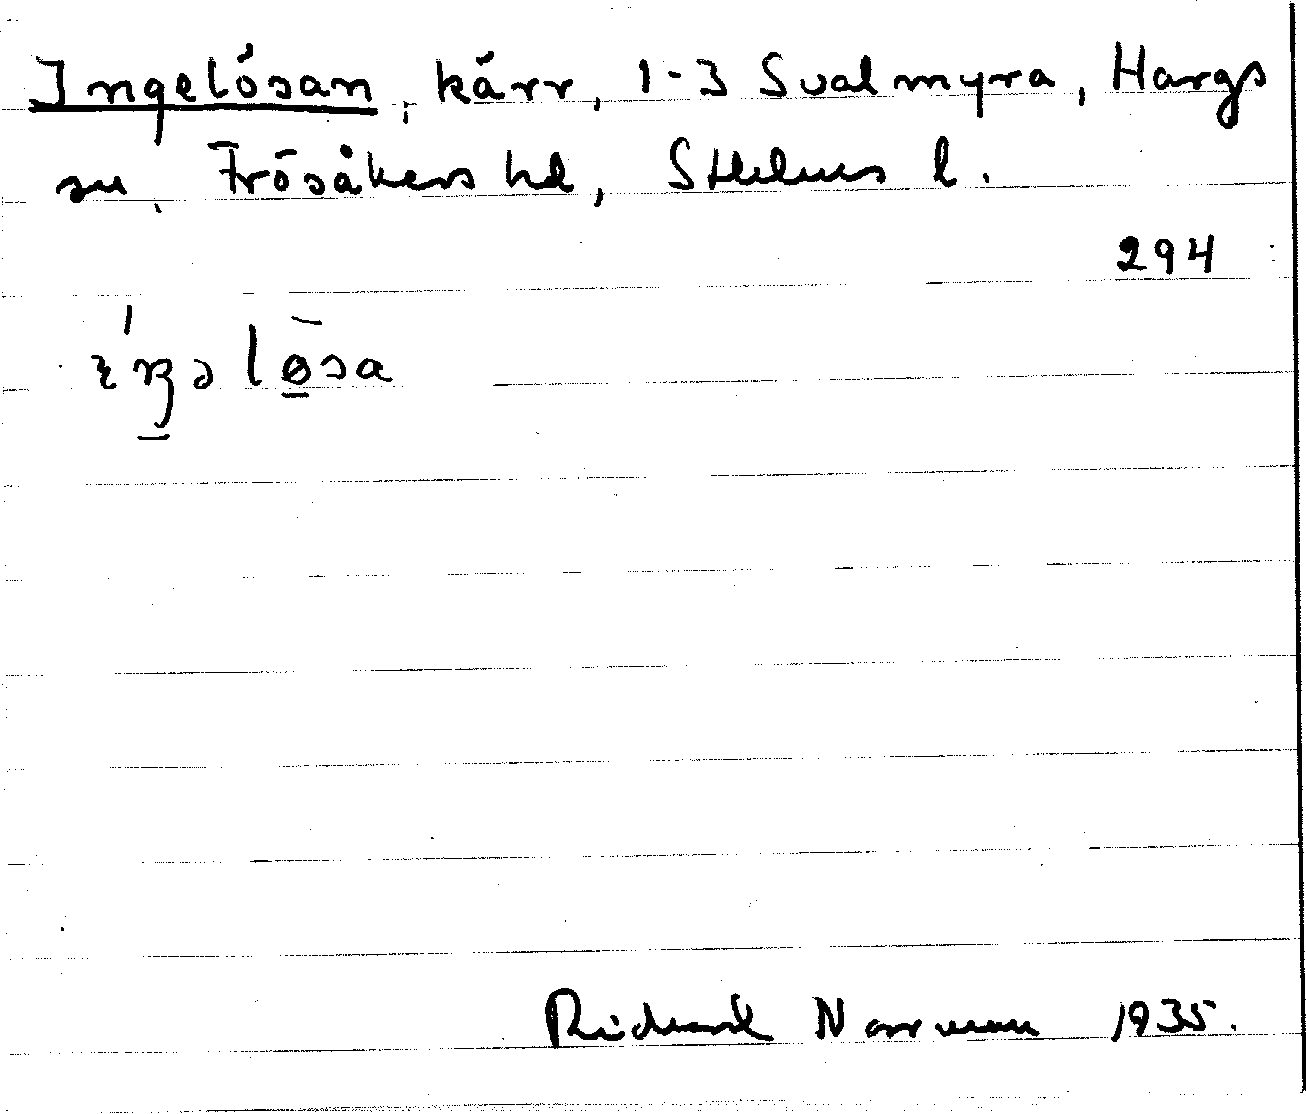 Ingelösan, kärr, 1-3 Svalmyra, Hargs
sn, Frösåkers hd, Sthlms l.
294
Rickard Norrman 1935.